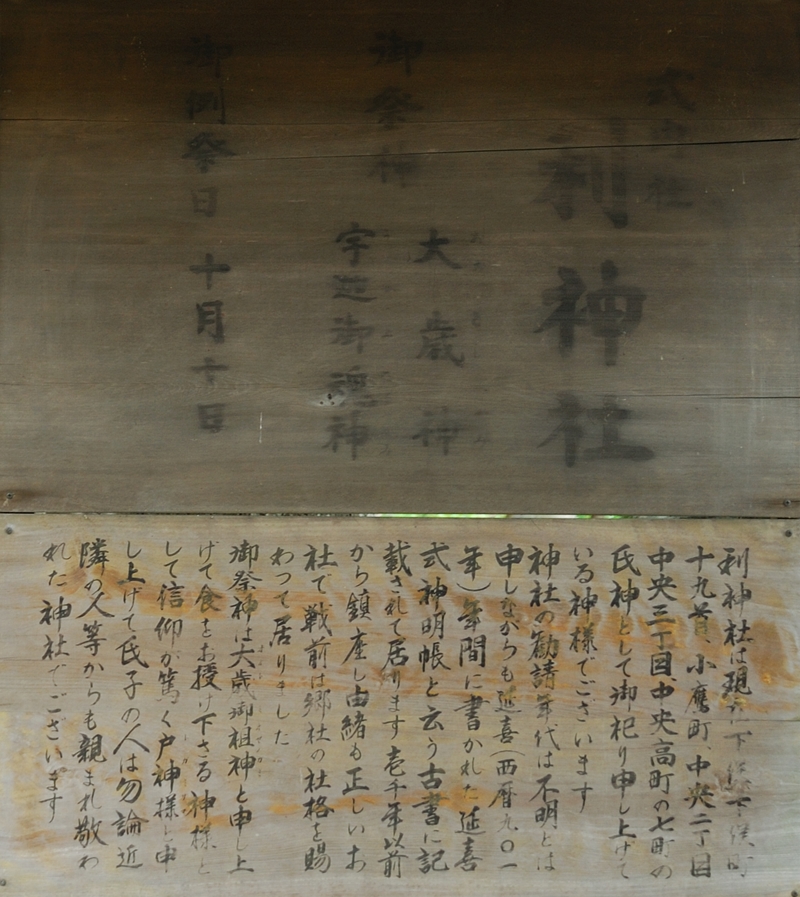 式内社
利神社
御祭神
大歳神
宇迦御魂神
御例祭日 十月十日
利神社は現在下俣下俣町
十九首、小鷹町、中央二丁目
中央三丁目、中央高町の七町の
氏神として御祀り申し上げて
いる神様でございます
神社の勧請年代は不明とは
申しながらも延喜(西暦九〇一
年)年間に書かれた延喜
式神明帳と云う古書に記
載されて居ります壱千年以前
から鎮座し由緒も正しいお
社で戦前は郷社の社格を賜
わって居りました
御祭神は大歳御祖神と申し上
げて食をお授け下さる神様と
して信仰が篤く戸神様と申
し上げて氏子の人は勿論近
隣の人等からも親まれ敬わ
れた神社でございます